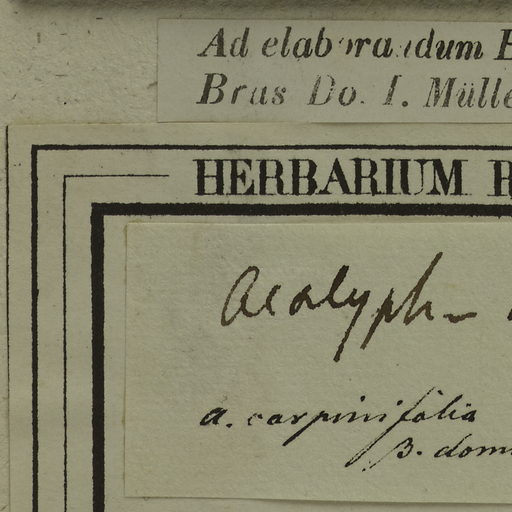 Ad elaborandum
Bras Do. I. Mülle
HERBARIUM R
Acalyph
a. carpinifolia
β. dom